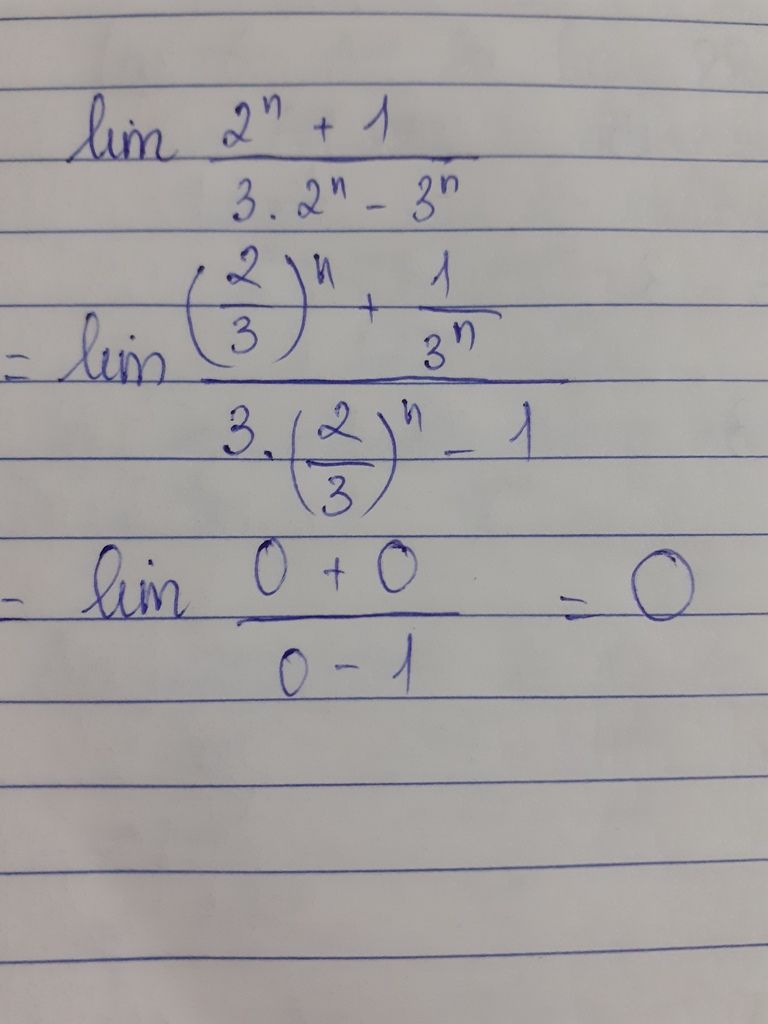 lim (2ⁿ + 1)/(3 . 2ⁿ - 3ⁿ)
= lim ((2/3)ⁿ + 1/3ⁿ)/(3 . (2/3)ⁿ - 1)
= lim (0 + 0)/(0 - 1) = 0